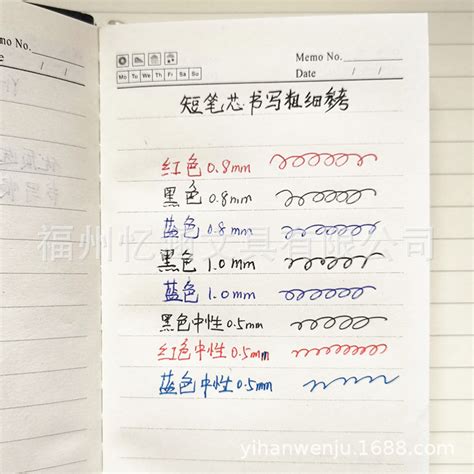 Memo No.
Mo Tu We Th Fr Sa Su
Date / /
短笔芯书写粗细参考
红色0.8mm
黑色0.8mm
蓝色0.8mm
福州忆 文具有限公司
黑色1.0mm
蓝色1.0mm
黑色中性0.5mm
红色中性0.5mm
蓝色中性0.5mm
yihanwenju.1688.com